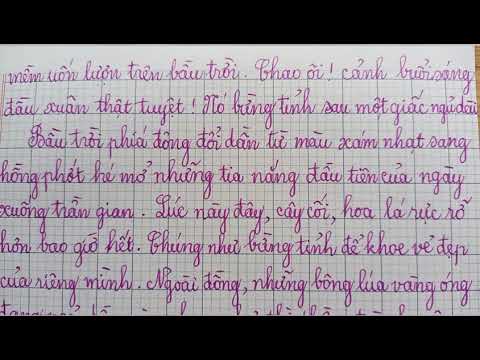 mềm uốn lượn trên bầu trời. Chao ôi! cảnh buổi sáng
đầu xuân thật tuyệt! Nó bừng tỉnh sau một giấc ngủ dài
Bầu trời phía đông đổi dần từ màu xám nhạt sang
hồng phớt hé mở những tia nắng đầu tiên của ngày
xuống trần gian. Lúc này đây, cây cối, hoa lá rực rỡ
hơn bao giờ hết. Chúng như bừng tỉnh để khoe vẻ đẹp
của riêng mình. Ngoài đồng, những bông lúa vàng óng